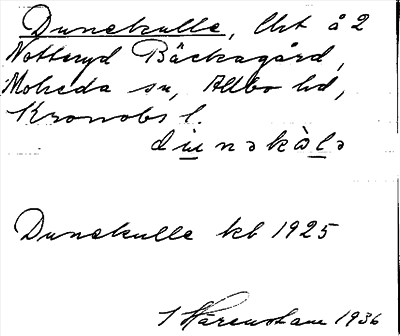 Dunekulle, lht å 2
Notteryd Bäckagård,
Moheda sn, Allbo hd,
Kronobs l.
dɯnəkàlə
Dunekulle kb 1925
1936